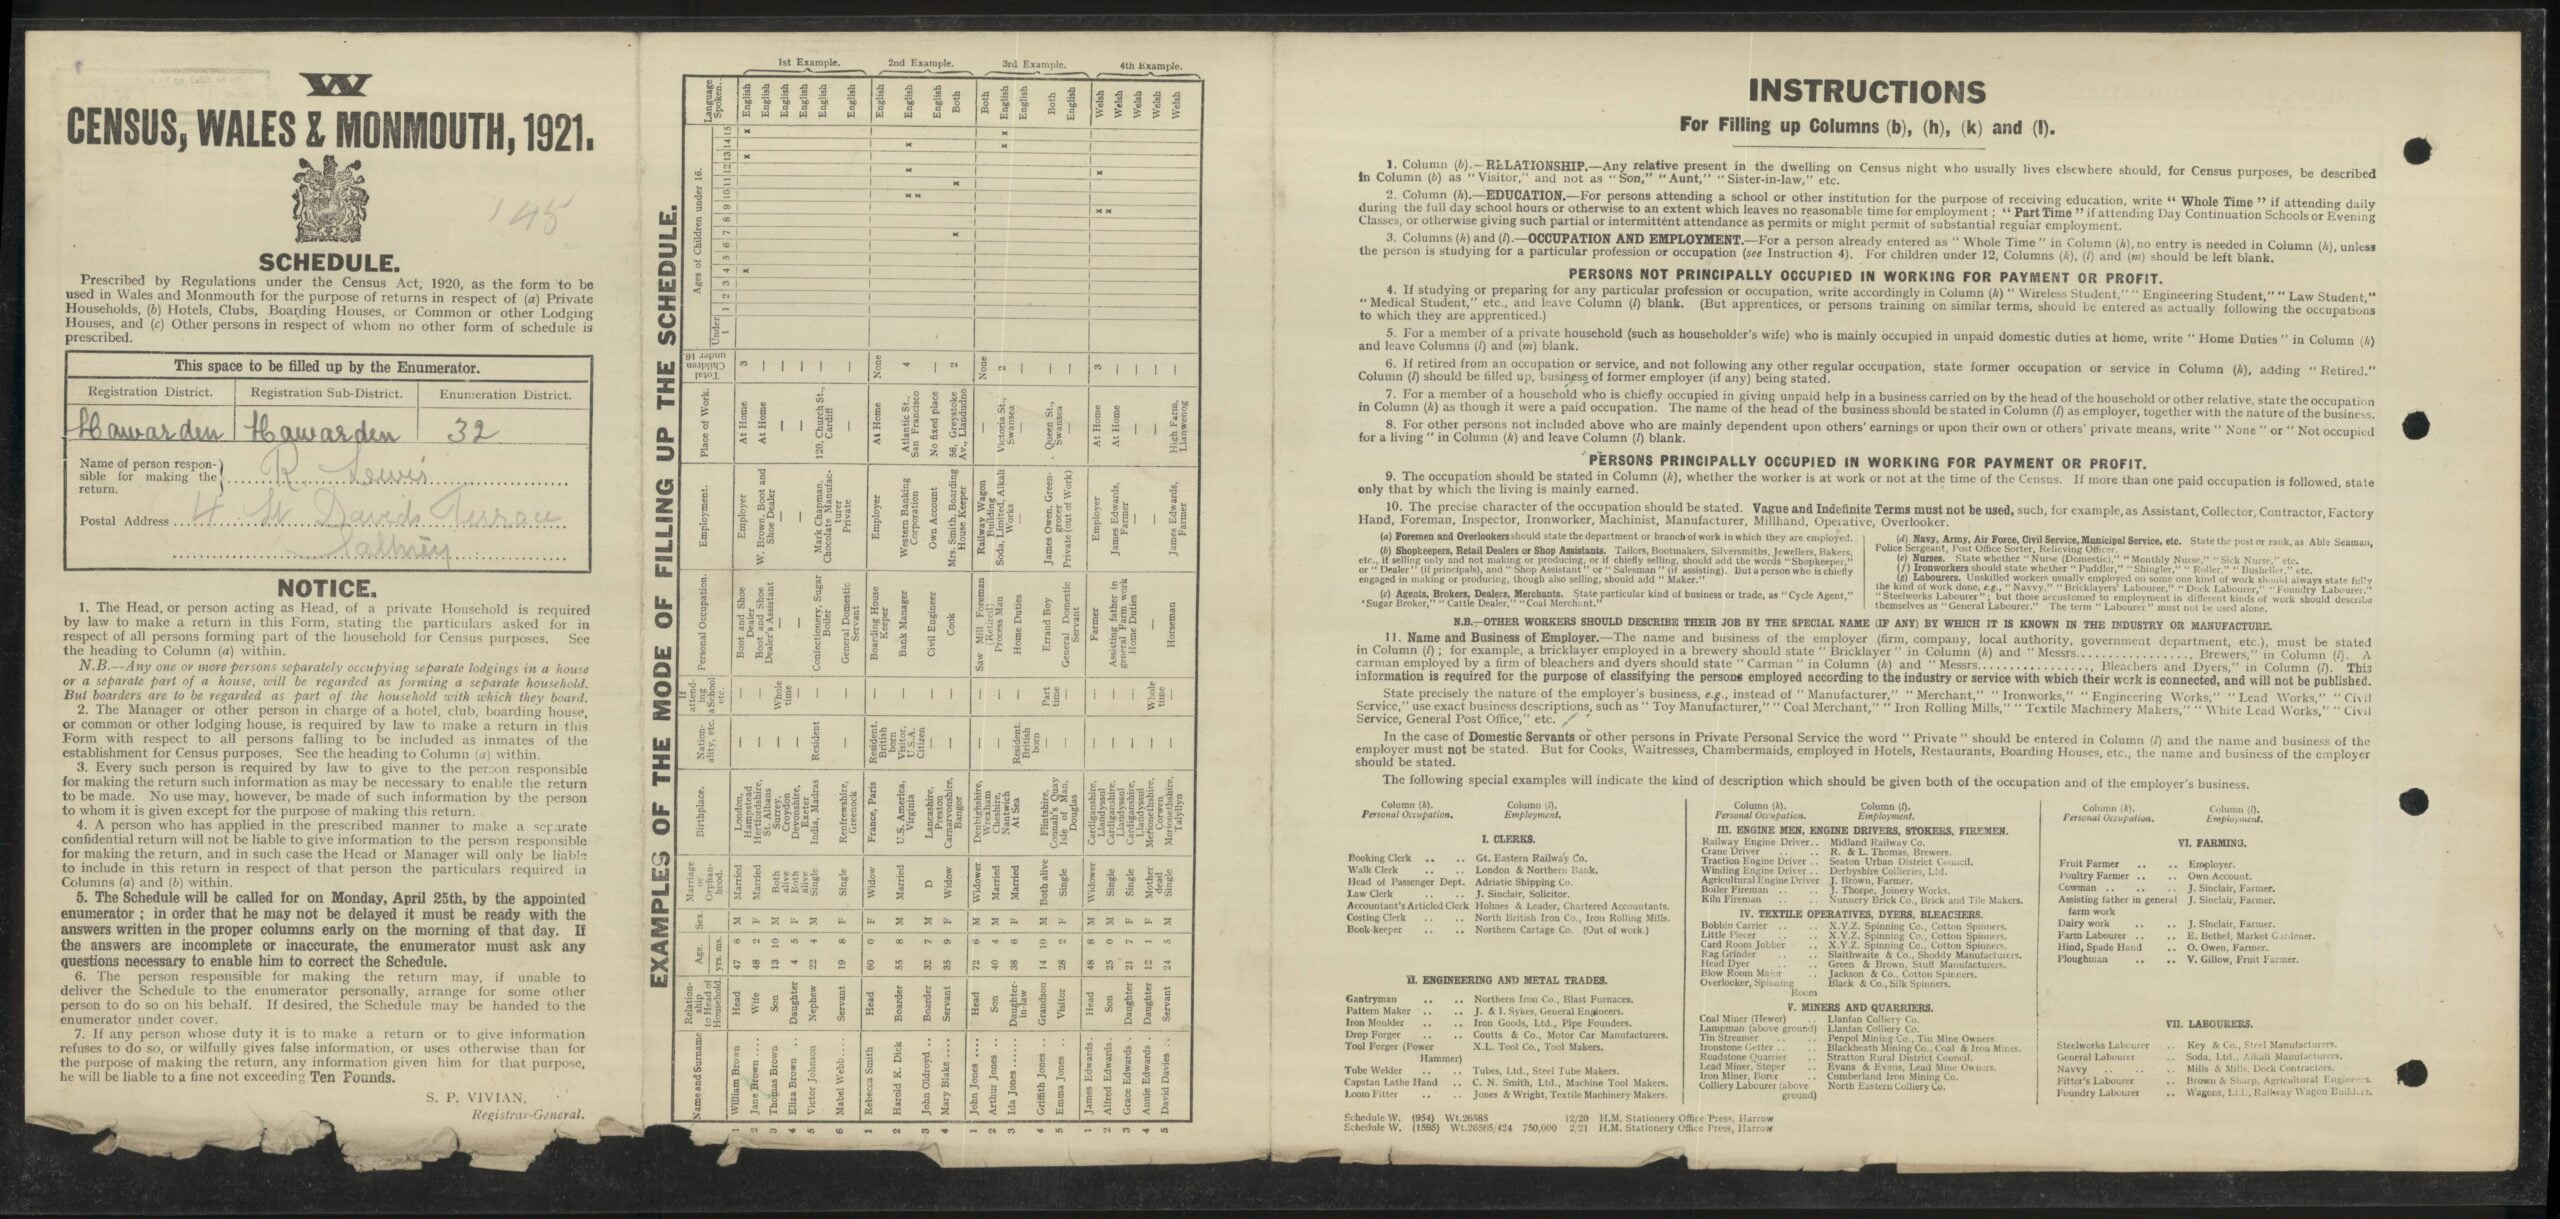 W
CENSUS, WALES & MONMOUTH, 1921.
145
SCHEDULE.
Prescribed by Regulations under the Census Act, 1920, as the form to be
used in Wales and Monmouth for the purpose of returns in respect of (a) Private
Households, (b) Hotels, Clubs, Boarding Houses, or Common or other Lodging
Houses, and (c) Other persons in respect of whom no other form of schedule is
prescribed.
This space to be filled up by the Enumerator.
Registration District. Registration Sub-District. Enumeration District.
Hawarden Hawarden 32
Name of person respon-
sible for making the R. Lewis
return.
Postal Address 4 St Davids Terrace
Saltney
NOTICE.
1. The Head, or person acting as Head, of a private Household is required
by law to make a return in this Form, stating the particulars asked for in
respect of all persons forming part of the household for Census purposes. See
the heading to Column (a) within.
N.B.—Any one or more persons separately occupying separate lodgings in a house
or a separate part of a house, will be regarded as forming a separate household.
But boarders are to be regarded as part of the household with which they board.
2. The Manager or other person in charge of a hotel, club, boarding house,
or common or other lodging house, is required by law to make a return in this
Form with respect to all persons falling to be included as inmates of the
establishment for Census purposes. See the heading to Column (a) within.
3. Every such person is required by law to give to the person responsible
for making the return such information as may be necessary to enable the return
to be made. No use may, however, be made of such information by the person
to whom it is given except for the purpose of making this return.
4. A person who has applied in the prescribed manner to make a separate
confidential return will not be liable to give information to the person responsible
for making the return, and in such case the Head or Manager will only be liable
to include in this return in respect of that person the particulars required in
Columns (a) and (b) within.
5. The Schedule will be called for on Monday, April 25th, by the appointed
enumerator; in order that he may not be delayed it must be ready with the
answers written in the proper columns early on the morning of that day. If
the answers are incomplete or inaccurate, the enumerator must ask any
questions necessary to enable him to correct the Schedule.
6. The person responsible for making the return may, if unable to
deliver the Schedule to the enumerator personally, arrange for some other
person to do so on his behalf. If desired, the Schedule may be handed to the
enumerator under cover.
7. If any person whose duty it is to make a return or to give information
refuses to do so, or wilfully gives false information, or uses otherwise than for
the purpose of making the return, any information given him for that purpose,
he will be liable to a fine not exceeding Ten Pounds.
S. P. VIVIAN,
Registrar-General.
EXAMPLES OF THE MODE OF FILLING UP THE SCHEDULE.
Name and Surname Relation-ship to Head of Household. Age. yrs. ms. Sex. Marriage or Orphan-hood. Birthplace. Nation-ality, etc. If attend-ing a School etc. Personal Occupation. Employment. Place of Work. Total Children under 16. Ages of Children under 16. Language Spoken.
Under 1 1 2 3 4 5 6 7 8 9 10 11 12 13 14 15
1st Example.
1 William Brown Head 47 6 M Married London, Hampstead — — Boot and Shoe Dealer Employer At Home 3 x x x English
2 Jane Brown Wife 48 2 F Married Hertfordshire, St. Albans — — Boot and Shoe Dealer's Assistant W. Brown, Boot and Shoe Dealer At Home — English
3 Thomas Brown Son 13 10 M Both alive Surrey, Croydon — Whole time — — — — English
4 Eliza Brown Daughter 4 5 F Both alive Devonshire, Exeter — — — — — — English
5 Victor Johnson Nephew 22 4 M Single India, Madras Resident — Confectionery, Sugar Boiler Mark Chapman, Chocolate Manufac-turer 120, Church St., Cardiff — English
6 Mabel Webb Servant 19 8 F Single Renfrewshire, Greenock — — General Domestic Servant Private — — English
2nd Example.
1 Rebecca Smith Head 60 0 F Widow France, Paris Resident British born — Boarding House Keeper Employer At Home None English
2 Harold K. Dick Boarder 55 8 M Married U.S. America, Virginia Visitor, U.S.A. Citizen — Bank Manager Western Banking Corporation Atlantic St., San Francisco 4 x x x x English
3 John Oldroyd Boarder 32 7 M D Lancashire, Preston — — Civil Engineer Own Account No fixed place — English
4 Mary Blake Servant 35 9 F Widow Carnarvonshire, Bangor — — Cook Mrs. Smith, Boarding House Keeper 56, Greystoke Av., Llandudno 2 x x Both
3rd Example.
1 John Jones Head 72 6 M Widower Denbighshire, Wrexham — — Saw Mill Foreman [Retired] Railway Wagon Building — None Both
2 Arthur Jones Son 40 4 M Married Cheshire, Nantwich — — Process Man Soda, Limited, Alkali Works Victoria St., Swansea 2 x x English
3 Ida Jones Daughter-in-law 38 6 F Married At Sea Resident British born — Home Duties — — — English
4 Griffith Jones Grandson 14 10 M Both alive Flintshire, Connah's Quay — Part time Errand Boy James Owen, Green-grocer Queen St., Swansea — Both
5 Emma Jones Visitor 28 2 F Single Isle of Man, Douglas — — General Domestic Servant Private (out of Work) — — English
4th Example.
1 James Edwards Head 48 8 M Widower Cardiganshire, Llandyssul — — Farmer Employer At Home 3 x x x Welsh
2 Alfred Edwards Son 25 0 M Single Cardiganshire, Llandyssul — — Assisting father in general Farm work James Edwards, Farmer At Home — Welsh
3 Grace Edwards Daughter 21 7 F Single Cardiganshire, Llandyssul — — Home Duties — — — Welsh
4 Annie Edwards Daughter 12 1 F Mother dead Merionethshire, Corwen — Whole time — — — — Welsh
5 David Davies Servant 24 5 M Single Merionethshire, Talyllyn — — Horseman James Edwards, Farmer High Farm, Llanwenog — Welsh
INSTRUCTIONS
For Filling up Columns (b), (h), (k) and (l).
1. Column (b).—RELATIONSHIP.—Any relative present in the dwelling on Census night who usually lives elsewhere should, for Census purposes, be described
in Column (b) as "Visitor," and not as "Son," "Aunt," "Sister-in-law," etc.
2. Column (h).—EDUCATION.—For persons attending a school or other institution for the purpose of receiving education, write "Whole Time" if attending daily
during the full day school hours or otherwise to an extent which leaves no reasonable time for employment; "Part Time" if attending Day Continuation Schools or Evening
Classes, or otherwise giving such partial or intermittent attendance as permits or might permit of substantial regular employment.
3. Columns (k) and (l).—OCCUPATION AND EMPLOYMENT.—For a person already entered as "Whole Time" in Column (h), no entry is needed in Column (k), unless
the person is studying for a particular profession or occupation (see Instruction 4). For children under 12, Columns (k), (l) and (m) should be left blank.
PERSONS NOT PRINCIPALLY OCCUPIED IN WORKING FOR PAYMENT OR PROFIT.
4. If studying or preparing for any particular profession or occupation, write accordingly in Column (k) "Wireless Student," "Engineering Student," "Law Student,"
"Medical Student," etc., and leave Column (l) blank. (But apprentices, or persons training on similar terms, should be entered as actually following the occupations
to which they are apprenticed.)
5. For a member of a private household (such as householder's wife) who is mainly occupied in unpaid domestic duties at home, write "Home Duties" in Column (k)
and leave Columns (l) and (m) blank.
6. If retired from an occupation or service, and not following any other regular occupation, state former occupation or service in Column (k), adding "Retired."
Column (l) should be filled up, business of former employer (if any) being stated.
7. For a member of a household who is chiefly occupied in giving unpaid help in a business carried on by the head of the household or other relative, state the occupation
in Column (k) as though it were a paid occupation. The name of the head of the business should be stated in Column (l) as employer, together with the nature of the business.
8. For other persons not included above who are mainly dependent upon others' earnings or upon their own or others' private means, write "None" or "Not occupied
for a living" in Column (k) and leave Column (l) blank.
PERSONS PRINCIPALLY OCCUPIED IN WORKING FOR PAYMENT OR PROFIT.
9. The occupation should be stated in Column (k), whether the worker is at work or not at the time of the Census. If more than one paid occupation is followed, state
only that by which the living is mainly earned.
10. The precise character of the occupation should be stated. Vague and Indefinite Terms must not be used, such, for example, as Assistant, Collector, Contractor, Factory
Hand, Foreman, Inspector, Ironworker, Machinist, Manufacturer, Millhand, Operative, Overlooker.
(a) Foremen and Overlookers should state the department or branch of work in which they are employed.
(b) Shopkeepers, Retail Dealers or Shop Assistants. Tailors, Bootmakers, Silversmiths, Jewellers, Bakers,
etc., if selling only and not making or producing, or if chiefly selling, should add the words "Shopkeeper,"
or "Dealer" (if principals), and "Shop Assistant" or "Salesman" (if assisting). But a person who is chiefly
engaged in making or producing, though also selling, should add "Maker."
(c) Agents, Brokers, Dealers, Merchants. State particular kind of business or trade, as "Cycle Agent,"
"Sugar Broker," "Cattle Dealer," "Coal Merchant."
(d) Navy, Army, Air Force, Civil Service, Municipal Service, etc. State the post or rank, as Able Seaman,
Police Sergeant, Post Office Sorter, Relieving Officer.
(e) Nurses. State whether "Nurse (Domestic)," "Monthly Nurse," "Sick Nurse," etc.
(f) Ironworkers should state whether "Puddler," "Shingler," "Roller," "Busheller," etc.
(g) Labourers. Unskilled workers usually employed on some one kind of work should always state fully
the kind of work done, e.g., "Navvy," "Bricklayers' Labourer," "Dock Labourer," "Foundry Labourer,"
"Steelworks Labourer"; but those accustomed to employment in different kinds of work should describe
themselves as "General Labourer." The term "Labourer" must not be used alone.
N.B.—OTHER WORKERS SHOULD DESCRIBE THEIR JOB BY THE SPECIAL NAME (IF ANY) BY WHICH IT IS KNOWN IN THE INDUSTRY OR MANUFACTURE.
11. Name and Business of Employer.—The name and business of the employer (firm, company, local authority, government department, etc.), must be stated
in Column (l); for example, a bricklayer employed in a brewery should state "Bricklayer" in Column (k) and "Messrs..............., Brewers," in Column (l). A
carman employed by a firm of bleachers and dyers should state "Carman" in Column (k) and "Messrs..............., Bleachers and Dyers," in Column (l). This
information is required for the purpose of classifying the persons employed according to the industry or service with which their work is connected, and will not be published.
State precisely the nature of the employer's business, e.g., instead of "Manufacturer," "Merchant," "Ironworks," "Engineering Works," "Lead Works," "Civil
Service," use exact business descriptions, such as "Toy Manufacturer," "Coal Merchant," "Iron Rolling Mills," "Textile Machinery Makers," "White Lead Works," "Civil
Service, General Post Office," etc.
In the case of Domestic Servants or other persons in Private Personal Service the word "Private" should be entered in Column (l) and the name and business of the
employer must not be stated. But for Cooks, Waitresses, Chambermaids, employed in Hotels, Restaurants, Boarding Houses, etc., the name and business of the employer
should be stated.
The following special examples will indicate the kind of description which should be given both of the occupation and of the employer's business.
Column (k). Personal Occupation. Column (l). Employment.
I. CLERKS.
Booking Clerk .. .. Gt. Eastern Railway Co.
Walk Clerk .. .. London & Northern Bank.
Head of Passenger Dept. Adriatic Shipping Co.
Law Clerk .. .. J. Sinclair, Solicitor.
Accountant's Articled Clerk Holmes & Leader, Chartered Accountants.
Costing Clerk .. .. North British Iron Co., Iron Rolling Mills.
Book-keeper .. .. Northern Cartage Co. (Out of work.)
II. ENGINEERING AND METAL TRADES.
Gantryman .. .. Northern Iron Co., Blast Furnaces.
Pattern Maker .. .. J. & I. Sykes, General Engineers.
Iron Moulder .. .. Iron Goods, Ltd., Pipe Founders.
Drop Forger .. .. Coutts & Co., Motor Car Manufacturers.
Tool Forger (Power Hammer) X.L. Tool Co., Tool Makers.
Tube Welder .. .. Tubes, Ltd., Steel Tube Makers.
Capstan Lathe Hand .. C. N. Smith, Ltd., Machine Tool Makers.
Loom Fitter .. .. Jones & Wright, Textile Machinery Makers.
Column (k). Personal Occupation. Column (l). Employment.
III. ENGINE MEN, ENGINE DRIVERS, STOKERS, FIREMEN.
Railway Engine Driver .. Midland Railway Co.
Crane Driver .. .. R. & L. Thomas, Brewers.
Traction Engine Driver .. Seaton Urban District Council.
Winding Engine Driver .. Derbyshire Collieries, Ltd.
Agricultural Engine Driver J. Brown, Farmer.
Boiler Fireman .. .. J. Thorpe, Joinery Works.
Kiln Fireman .. .. Nunnery Brick Co., Brick and Tile Makers.
IV. TEXTILE OPERATIVES, DYERS, BLEACHERS.
Bobbin Carrier .. .. X.Y.Z. Spinning Co., Cotton Spinners.
Little Piecer .. .. X.Y.Z. Spinning Co., Cotton Spinners.
Card Room Jobber .. X.Y.Z. Spinning Co., Cotton Spinners.
Rag Grinder .. .. Slaithwaite & Co., Shoddy Manufacturers.
Head Dyer .. .. Green & Brown, Stuff Manufacturers.
Blow Room Major .. Jackson & Co., Cotton Spinners.
Overlooker, Spinning Room Black & Co., Silk Spinners.
V. MINERS AND QUARRIERS.
Coal Miner (Hewer) .. Llanfan Colliery Co.
Lampman (above ground) Llanfan Colliery Co.
Tin Streamer .. .. Penpol Mining Co., Tin Mine Owners.
Ironstone Getter .. .. Blackheath Mining Co., Coal & Iron Mines.
Roadstone Quarrier .. Stratton Rural District Council.
Lead Miner, Stoper .. Evans & Evans, Lead Mine Owners.
Iron Miner, Borer .. Cumberland Iron Mining Co.
Colliery Labourer (above ground) North Eastern Colliery Co.
Column (k). Personal Occupation. Column (l). Employment.
VI. FARMING.
Fruit Farmer .. .. Employer.
Poultry Farmer .. .. Own Account.
Cowman .. .. .. J. Sinclair, Farmer.
Assisting father in general farm work J. Sinclair, Farmer.
Dairy work .. .. J. Sinclair, Farmer.
Farm Labourer .. .. E. Bethel, Market Gardener.
Hind, Spade Hand .. O. Owen, Farmer.
Ploughman .. .. V. Gillow, Fruit Farmer.
VII. LABOURERS.
Steelworks Labourer .. Key & Co., Steel Manufacturers.
General Labourer .. Soda, Ltd., Alkali Manufacturers.
Navvy .. .. .. Mills & Mills, Dock Contractors.
Fitter's Labourer .. Brown & Sharp, Agricultural Engineers.
Foundry Labourer .. Wagons, Ltd., Railway Wagon Builders.
Schedule W. (954) Wt.26585 12/20 H.M. Stationery Office Press, Harrow
Schedule W. (1595) Wt.26585/424 750,000 2/21 H.M. Stationery Office Press, Harrow